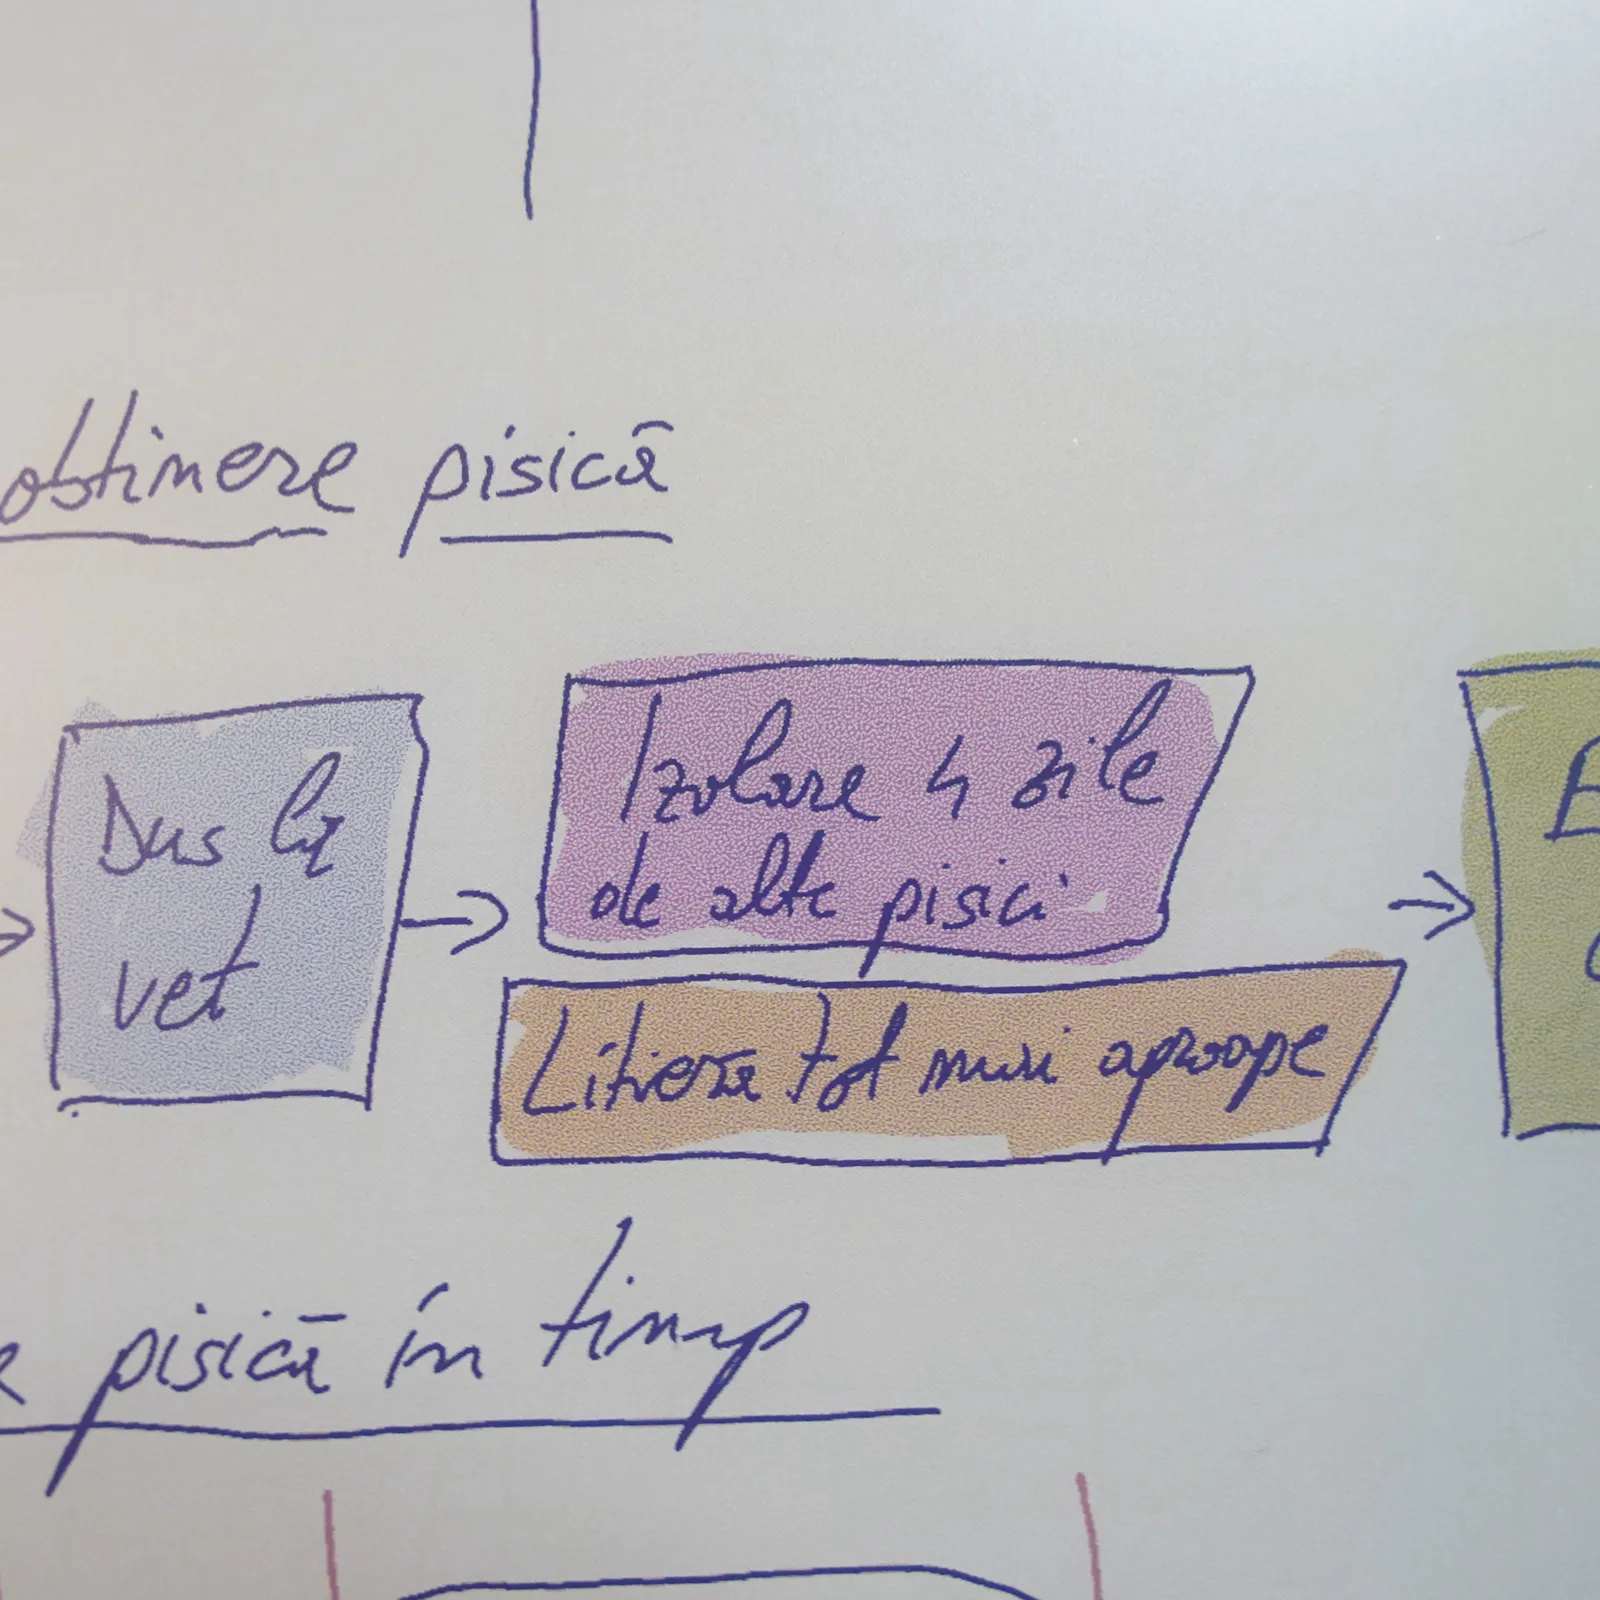 obtinere pisică
Dus la
vet
Izolare 4 zile
de alte pisici
Litiera tot mai aproape
pisică în timp